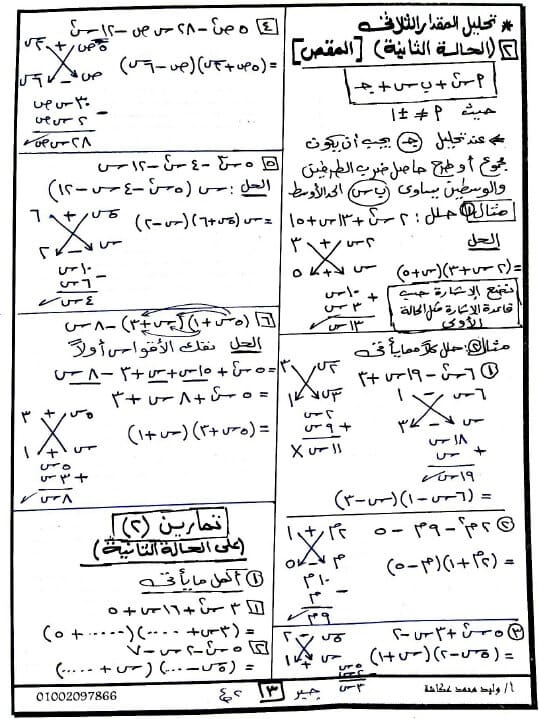 * تحليل المقدار الثلاثى
٢ (الحالة الثانية) [المقص]
٢س٢ + ب س + جـ
حيث ٢ ≠ ±١
عند تحليل جـ يجب أن يكون
مجموع أو طرح حاصل ضرب الطرفين
والوسطين يساوى (ب س) الحد الأوسط
مثال ١ حلل: ٢س٢ + ١٣س + ١٥
الحل
٢س + ٣
س + ٥
= (٢س + ٣)(س + ٥)
١٠س
+ ٣س
١٣س ✓
نضع الإشارة حسب
قاعدة الإشارة مثل الحالة
الأولى
مثال ٢: حلل كلاً مما يأتى
١ ٦س٢ - ١٩س + ٣
٦س - ١
س - ٣
١٨س
+ س
١٩س ✓
٢س ٣
٣س ١
٢س
+ ٩س
١١س X
= (٦س - ١)(س - ٣)
٢ ٢م٢ - ٩م - ٥
٢م + ١
م - ٥
= (٢م + ١)(م - ٥)
١٠م
- م
٩م ✓
٣ ٥س٢ + ٣س - ٢
٥س - ٢
س + ١
= (٥س - ٢)(س + ١)
٥س
- ٢س
٣س ✓
٤ ٥س٢ - ٢٨س ص - ١٢ص٢
٥س + ٢ص
س - ٦ص
= (٥س + ٢ص)(س - ٦ص)
٣٠س ص
- ٢س ص
٢٨س ص ✓
٥ ٥س٣ - ٤س٢ - ١٢س
الحل: س (٥س٢ - ٤س - ١٢)
٥س + ٦
س - ٢
= س(٥س + ٦)(س - ٢)
١٠س
- ٦س
٤س ✓
٦ (٥س + ١)(س + ٣) - ٨س
الحل نفك الأقواس أولاً
= ٥س٢ + ١٥س + س + ٣ - ٨س
= ٥س٢ + ٨س + ٣
٥س + ٣
س + ١
= (٥س + ٣)(س + ١)
٥س
+ ٣س
٨س ✓
تمارين (٢)
(على الحالة الثانية)
١ أكمل ما يأتى
١ ٣س٢ + ١٦س + ٥
= (٣س + .....)(..... + ٥)
٢ ٥س٢ - ٢س - ٧
= (٥س - .....)(س + .....)
أ/ وليد محمد عكاشة
جبر ٣ ٢ع ت٢
01002097866